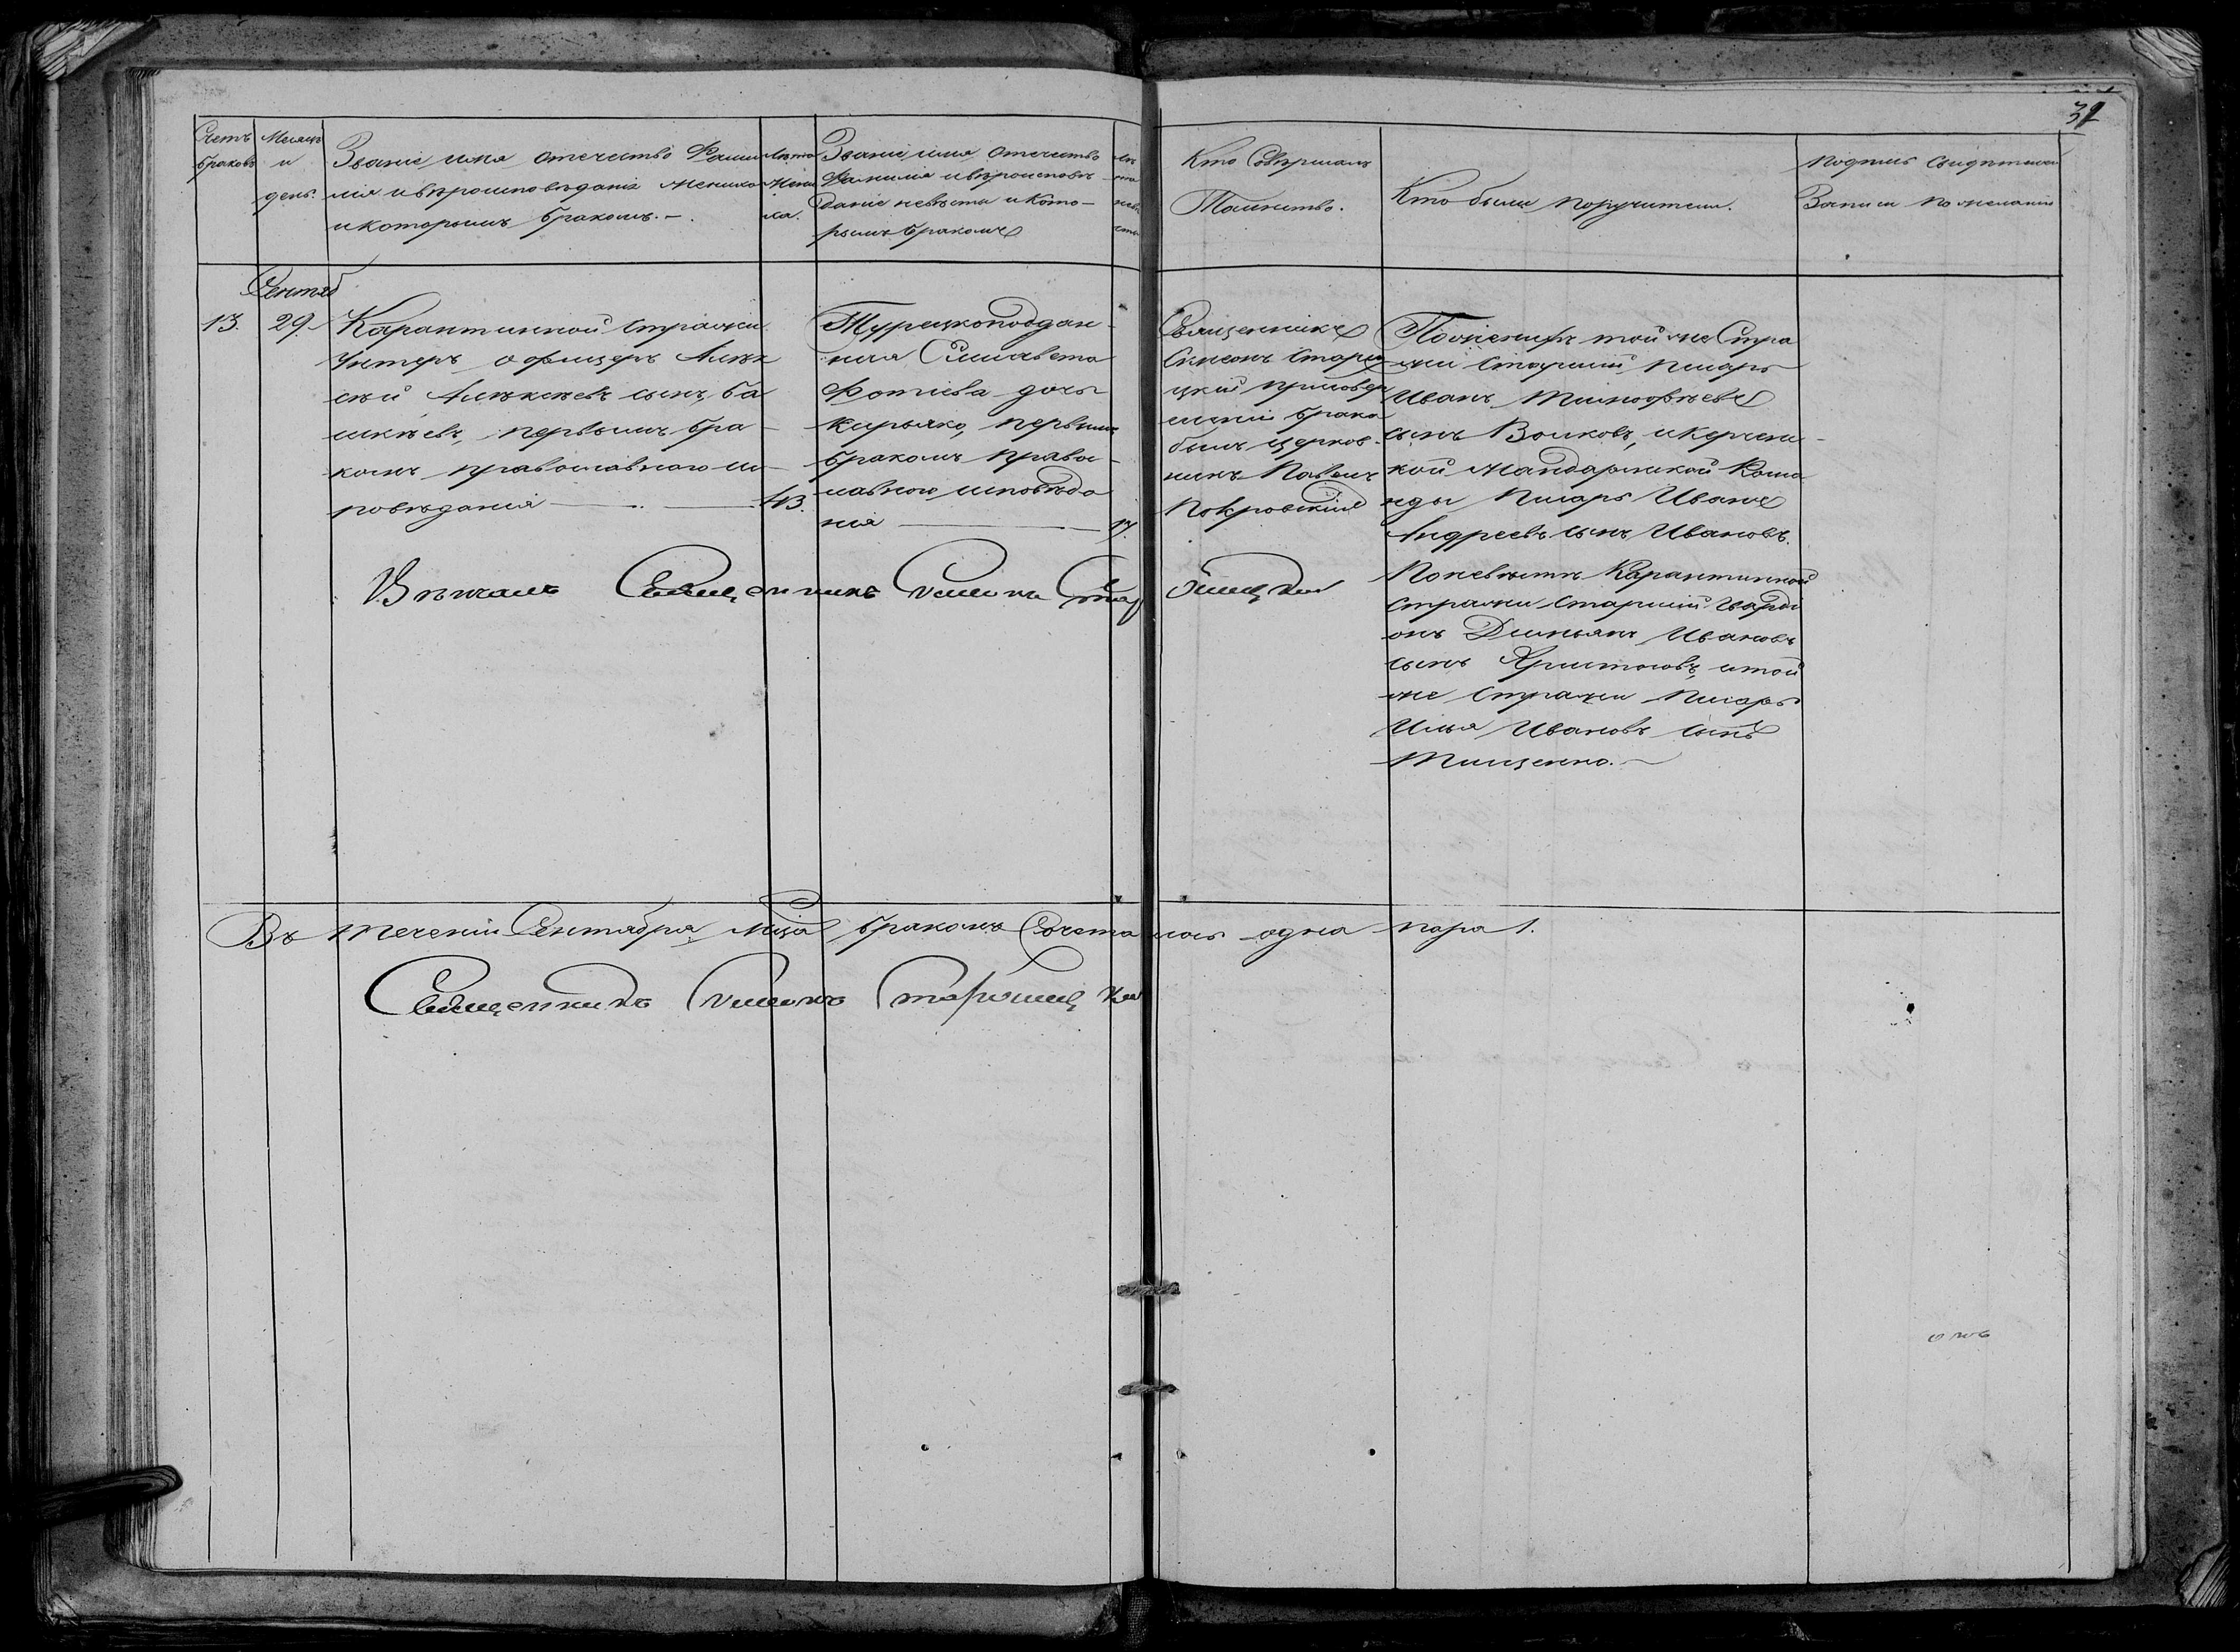 32
Счетъ
браковъ
Месяцъ
и
день.
Званіе имя отечество Фами
лія и вѣроисповѣданіе жениха
и которымъ бракомъ. —
Лѣта
Жени
ха.
Званіе, имя отечество
Фамилия и вѣроисповѣ-
даніе невѣсты и кото-
рымъ бракомъ
Лѣ
та
невѣ
сты
Кто Совѣршалъ
Таинство.
Кто были поручители.
подпись свидѣтелей
Записи по желанію
Сентяб
13.
29.
Карантинной стражи
Унтеръ офицеръ Алек
сѣй Алексѣевъ сынъ, Ба
шкѣевъ, первымъ бра-
комъ православного ис-
повѣданія
43.
Турецкоподдан-
ная Елисавета
Фотіева дочь
Кирьяко, первымъ
бракомъ право-
славного исповѣда
нія
17.
Священникъ
Симеонъ Стари
цкій при совер
шеніи брака
былъ церков-
никъ Павелъ
Покровскій
По женихѣ той же Стра
жи Старшій писарь
Иванъ Тимофѣевъ
сынъ Волковъ, и Керчен-
кой жандармской Кома
нды писарь Иванъ
Андреевъ сынъ Ивановъ.
По невѣсте Карантинной
стражи старшій гварді
онъ Димьянъ Ивановъ
сынъ Христовъ, и той
же стражи писарь
Илья Ивановъ сынъ
Тищенко. —
Вѣнчалъ Священникъ Симеонъ
Въ теченіи Сентября м-ца бракомъ Сочеталась одна пара 1.
Священникъ Симеонъ